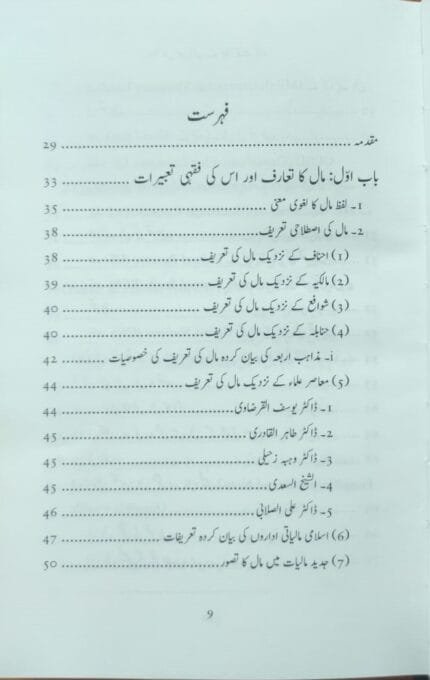 فہرست
مقدمہ ................ 29
باب اوّل: مال کا تعارف اور اس کی فقہی تعبیرات ................ 33
1۔ لفظ مال کا لغوی معنی ................ 35
2۔ مال کی اصطلاحی تعریف ................ 38
(1) احناف کے نزدیک مال کی تعریف ................ 38
(2) مالکیہ کے نزدیک مال کی تعریف ................ 39
(3) شوافع کے نزدیک مال کی تعریف ................ 40
(4) حنابلہ کے نزدیک مال کی تعریف ................ 40
i۔ مذاہب اربعہ کی بیان کردہ مال کی تعریف کی خصوصیات ................ 42
(5) معاصر علماء کے نزدیک مال کی تعریف ................ 44
1۔ ڈاکٹر یوسف القرضاوی ................ 44
2۔ ڈاکٹر طاہر القادری ................ 45
3۔ ڈاکٹر وہبہ زحیلی ................ 45
4۔ الشیخ السعدی ................ 45
5۔ ڈاکٹر علی الصلابی ................ 46
(6) اسلامی مالیاتی اداروں کی بیان کردہ تعریفات ................ 47
(7) جدید مالیات میں مال کا تصور ................ 50
9